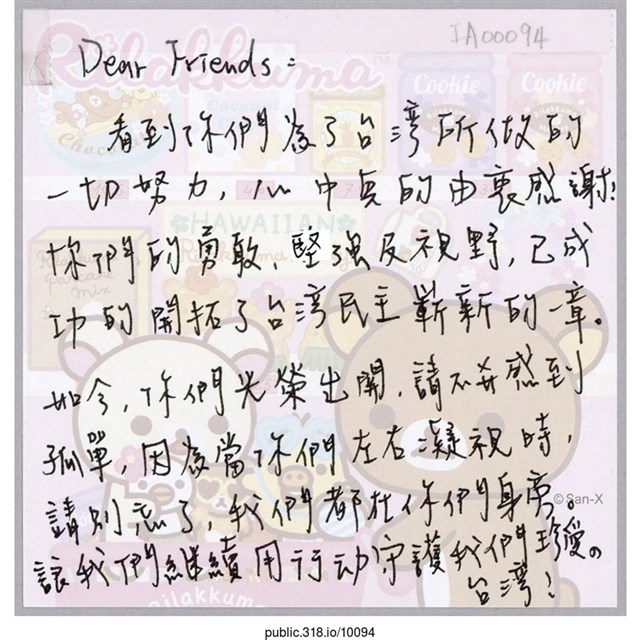 IA00094
Dear Friends:
看到你們為了台灣所做的
一切努力,心中真的由衷感謝!
你們的勇敢、堅強及視野,已成
功的開拓了台灣民主嶄新的一章。
如今,你們光榮出關,請不要感到
孤單,因為當你們左右凝視時,
請別忘了,我們都在你們身旁。
讓我們繼續用行动守護我們珍愛的
台灣!
Rilakkuma
Cookie
Cookie
HAWAIIAN
Rilakkuma
Pancake
mix
© San-X
public.318.io/10094